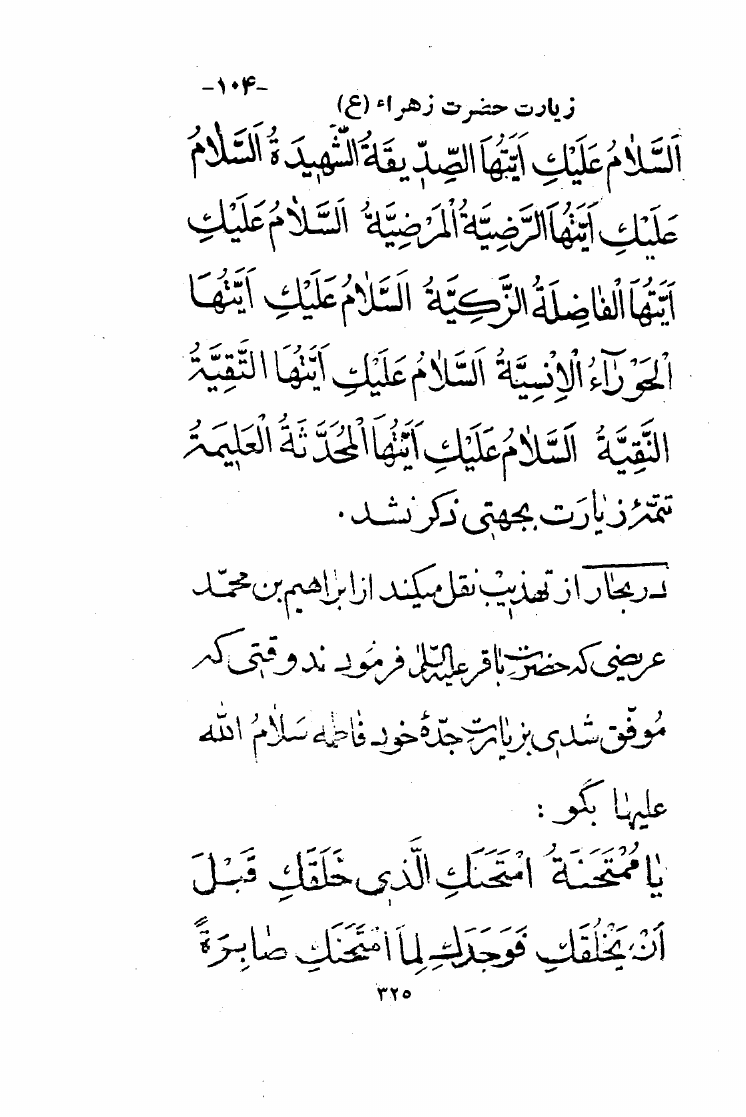 -۱۰۴-
زیارت حضرت زهراء (ع)
اَلسَّلٰامُ عَلَیْكِ اَیَّتُهَا الصِّدّیقَةُ الشَّهیدَةُ اَلسَّلٰامُ
عَلَیْكِ اَیَّتُهَا الرَّضِیَّةُ الْمَرْضِیَّةُ اَلسَّلٰامُ عَلَیْكِ
اَیَّتُهَا الْفٰاضِلَةُ الزَّكِیَّةُ اَلسَّلٰامُ عَلَیْكِ اَیَّتُهَا
الْحَوْرٰآءُ الْاِنْسِیَّةُ اَلسَّلٰامُ عَلَیْكِ اَیَّتُهَا التَّقِیَّةُ
النَّقِیَّةُ اَلسَّلٰامُ عَلَیْكِ اَیَّتُهَا الْمُحَدَّثَةُ الْعَلیمَةُ
تتمّهٔ زیٰارَت بجهتی ذکر نشد.
در بحٰار از تهذیب نقل میکند از ابرٰاهیم بن محمّد
عریضی که حضرت بٰاقر علیه السّلام فرمود ند وقتی که
مُوفّق شدی بزیٰارتِ جدّهٔ خود فٰاطمه سَلٰامُ الله
علیهٰا بگو :
یٰا مُمْتَحَنَةُ امْتَحَنَكِ الَّذی خَلَقَكِ قَبْلَ
اَنْ یَخْلُقَكِ فَوَجَدَكِ لِمَا امْتَحَنَكِ صٰابِرَةً
۳۲۵